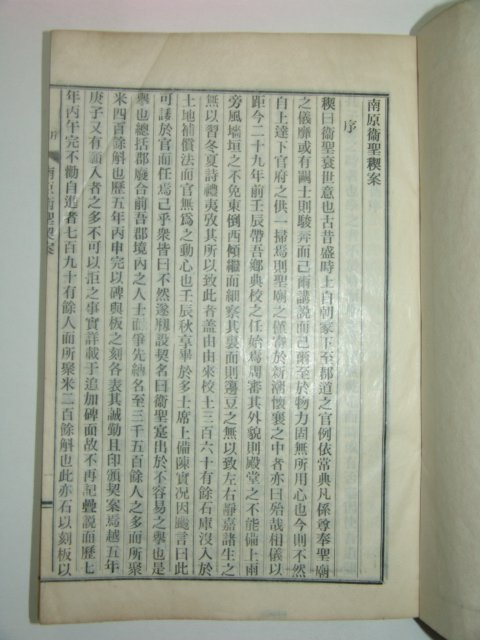 南原衞聖稧案
序
稧曰衞聖衰世意也古昔盛時上自朝家下至郡道之官例依常典凡係尊奉聖廟
之儀靡或有闕士則駿奔而已爾講說而已爾至於物力固無所用心也今則不然
自上達下官府之供一掃焉則聖廟之僅寄於新潮懷襄之中者亦曰殆哉相儀以
距今二十九年前壬辰帶吾鄕典校之任始焉周審其外貌則殿堂之不能備上雨
旁風墻垣之不免東倒西傾繼而細察其裏面則籩豆之無以致左右靜嘉諸生之
無以習冬夏詩禮夷攷其所以致此者蓋由由來校土三百六十有餘石庫沒入於
土地補償法而官無爲之動心也壬辰秋享畢於多士席上備陳實况因颺言曰此
可諉於官而任焉己乎衆皆曰不然遂刱設契名曰衞聖寔出於不容易之擧也是
擧也總括郡廢合前吾郡境內之人士而爭先納名至三千五百餘人之多而所聚
米四百餘斛也歷五年丙申完以碑與板之刻各表其誠勤且印頒契案焉越五年
庚子又有願入者之多不可以拒之事實詳載于追加碑面故不再記疊說面歷七
年丙午完不勸自進者七百九十有餘人而所聚米二百餘斛也此亦石以刻板以
序
南原衞聖契案